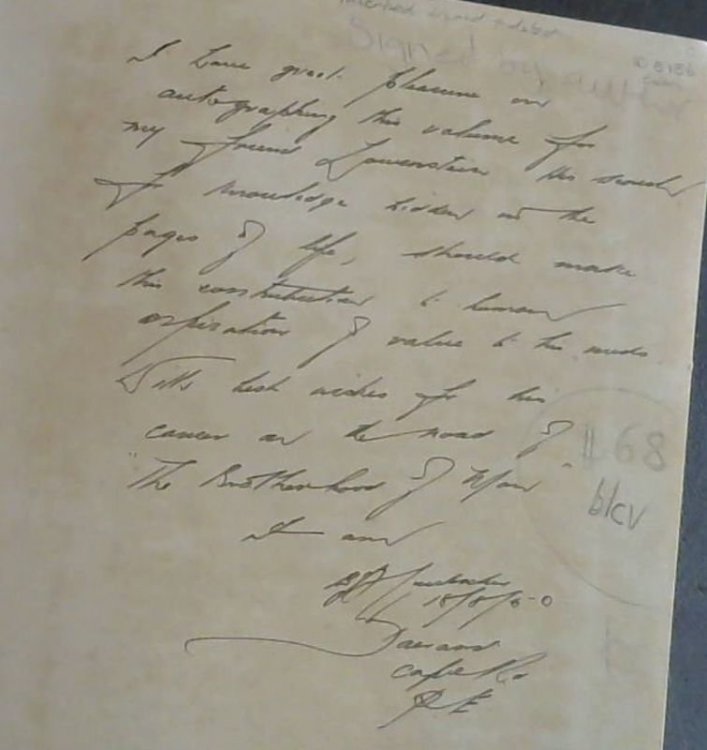 Signed by author
I have great pleasure in
autographing this volume for
my friend Lowenstein his search
for knowledge hidden in the
pages of life, should make
this contribution to human
aspiration of value to his needs
With best wishes for his
career on the road of
"The Brotherhood of Man"
I am
18/8/60
Cape Rd
P E
68
blcv